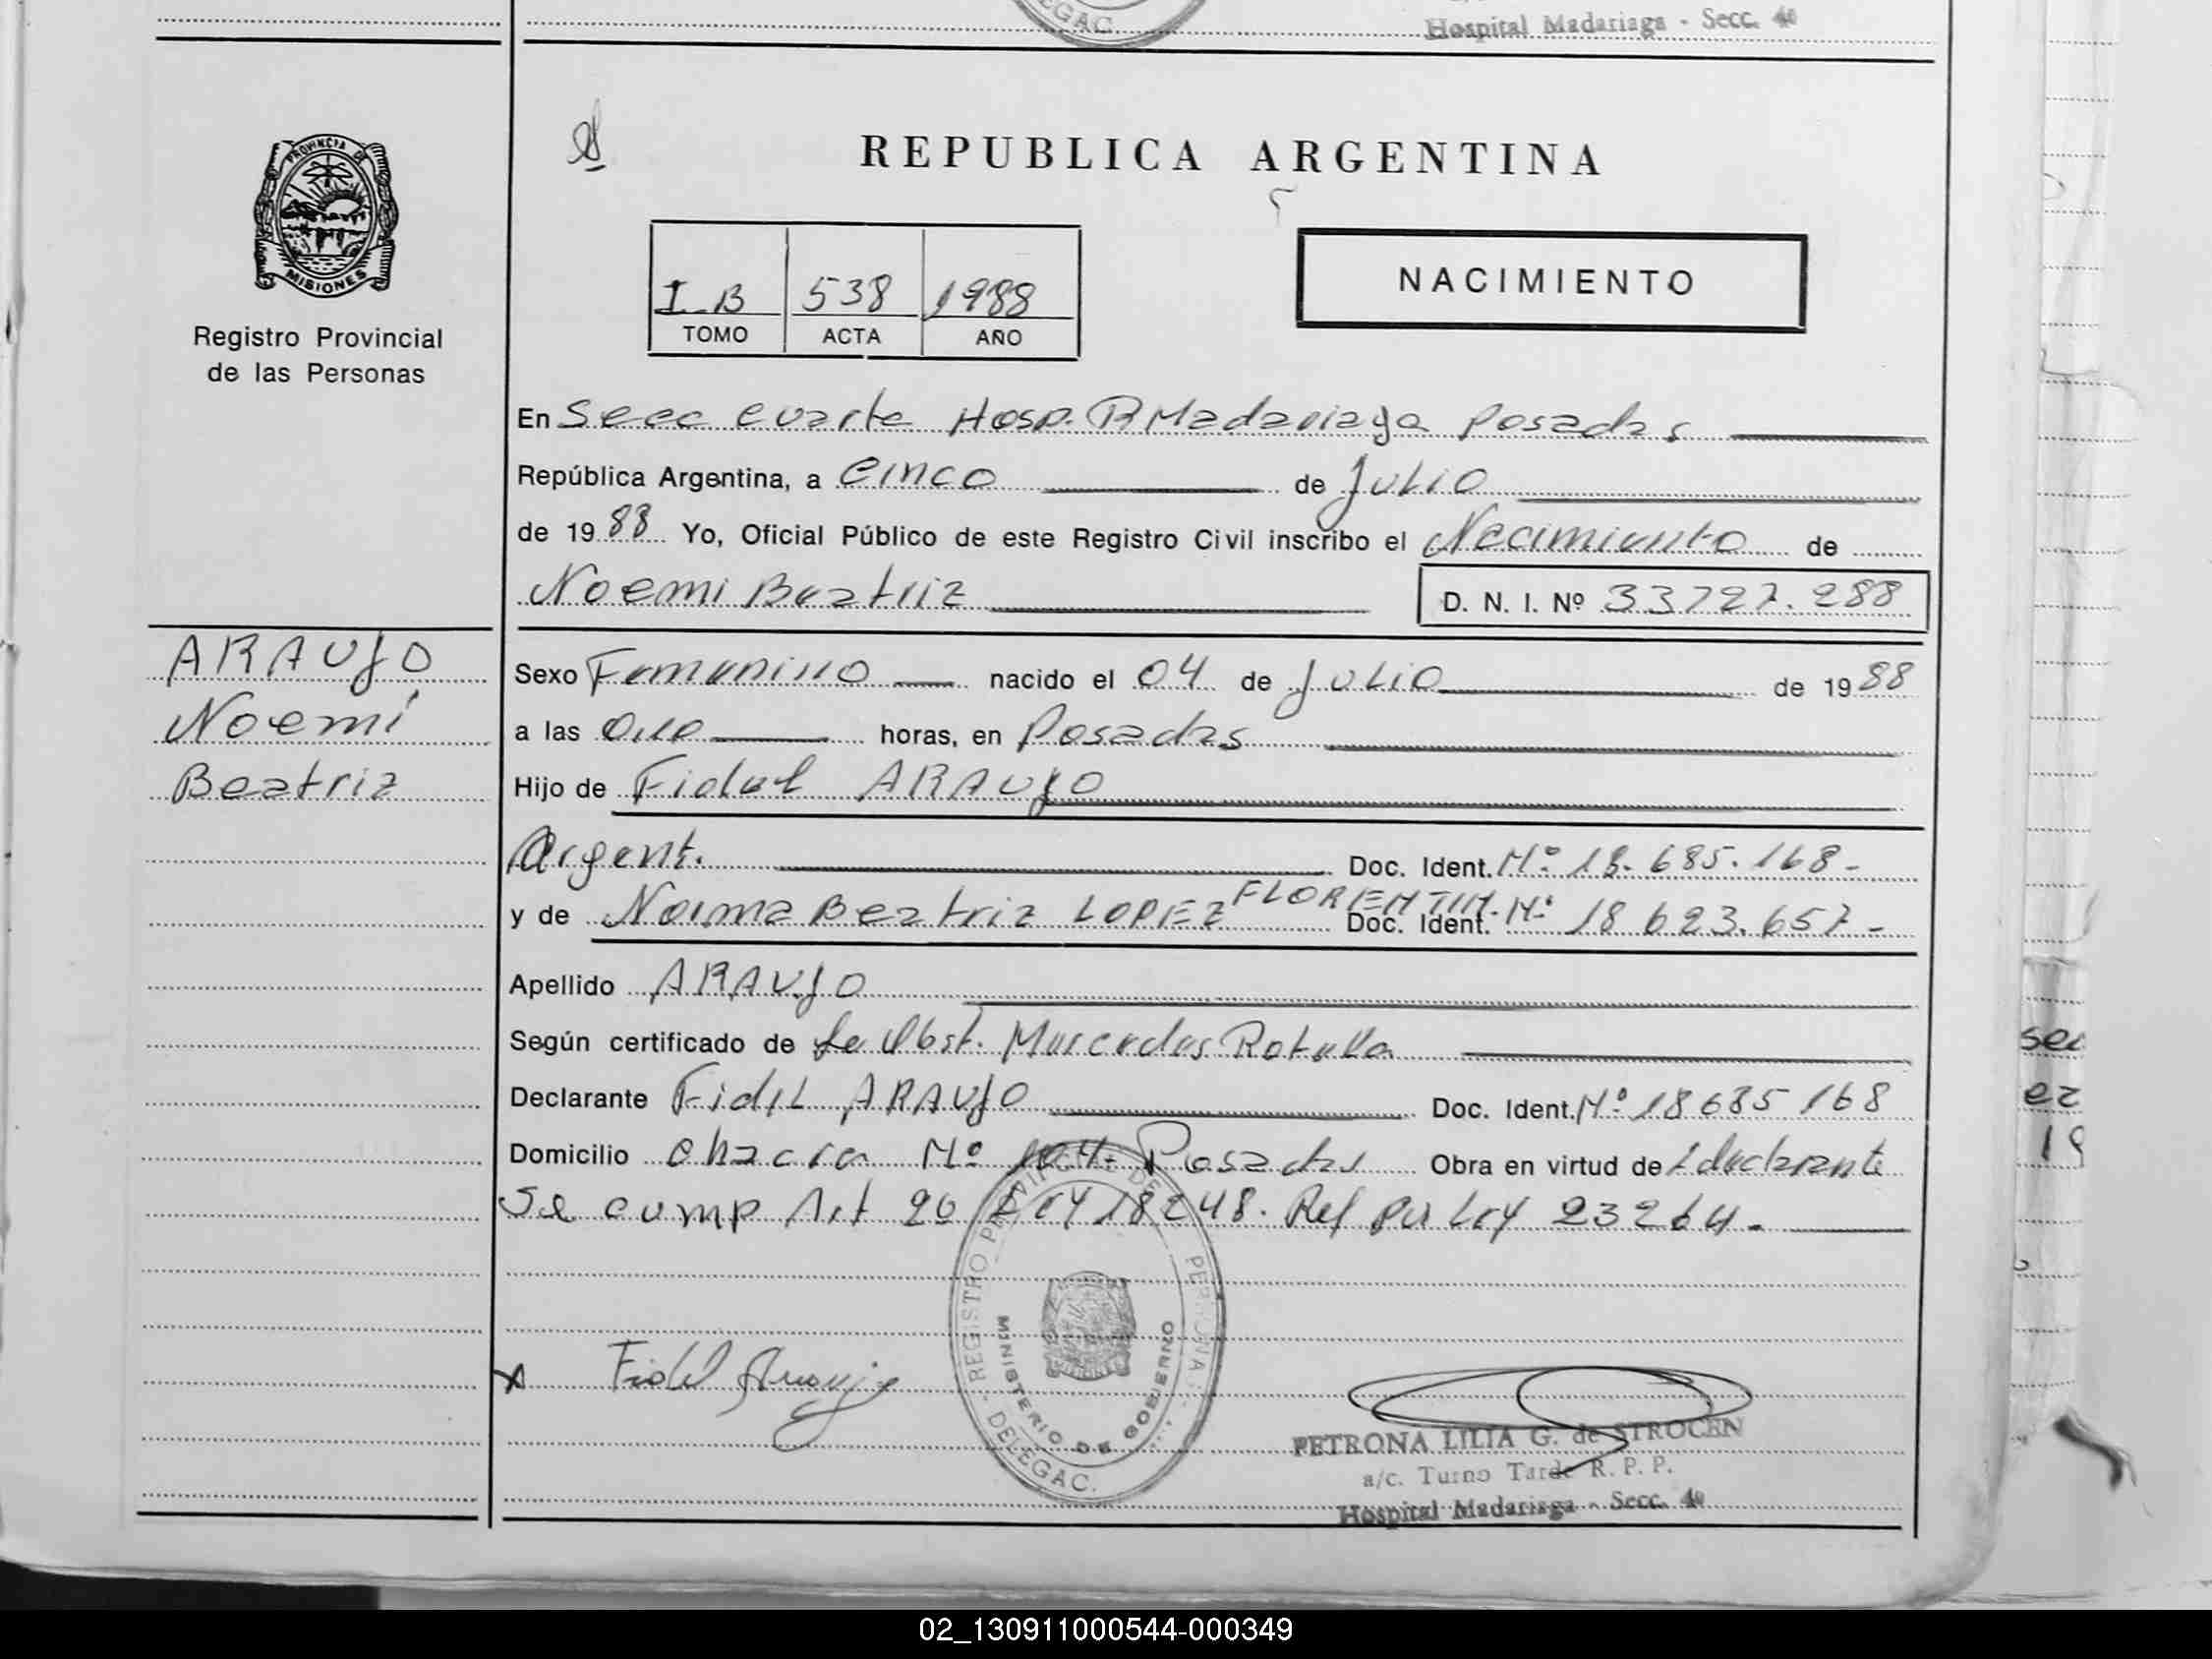 DELEGAC.
Hospital Madariaga - Secc. 4º
PROVINCIA DE
MISIONES
Registro Provincial
de las Personas
REPUBLICA ARGENTINA
I B 538 1988
TOMO ACTA AÑO
NACIMIENTO
En Secc cuarta Hosp. R Madariaga Posadas
República Argentina, a cinco de Julio
de 1988 Yo, Oficial Público de este Registro Civil inscribo el Nacimiento de
Noemi Beatriz D. N. I. Nº 33727.288
ARAUJO
Noemí
Beatriz
Sexo Femenino nacido el 04 de Julio de 1988
a las 0,10 horas, en Posadas
Hijo de Fidel ARAUJO
Argent. Doc. Ident. Nº 18.685.168-
y de Norma Beatriz LOPEZ FLORENTIN Doc. Ident. Nº 18 623.657-
Apellido ARAUJO
Según certificado de La Obst. Mercedes Rotella
Declarante Fidel ARAUJO Doc. Ident. Nº 18685168
Domicilio chacra Nº 104 Posadas Obra en virtud de declarante
Se cump Art 20 Ley 18248. Ref por Ley 23264.
REGISTRO PROVINCIAL DE PERSONAS
MINISTERIO DE GOBIERNO
DELEGAC.
x Fidel Araujo
PETRONA LILIA G. de STROCEN
a/c. Turno Tarde R. P. P.
Hospital Madariaga - Secc. 4º
02_130911000544-000349